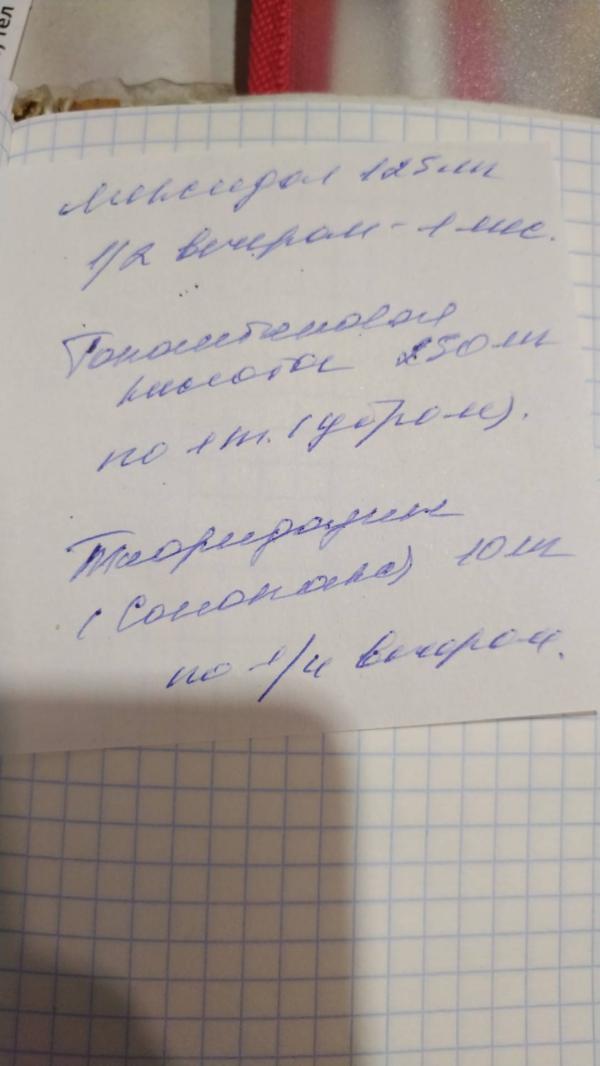 тел
Мексидол 125 мг
1/2 вечером - 1 мес.
Гопантеновая
кислота 250 мг
по 1 т. (утром).
Тиоридазин
(Сонапакс) 10 мг
по 1/4 вечером.